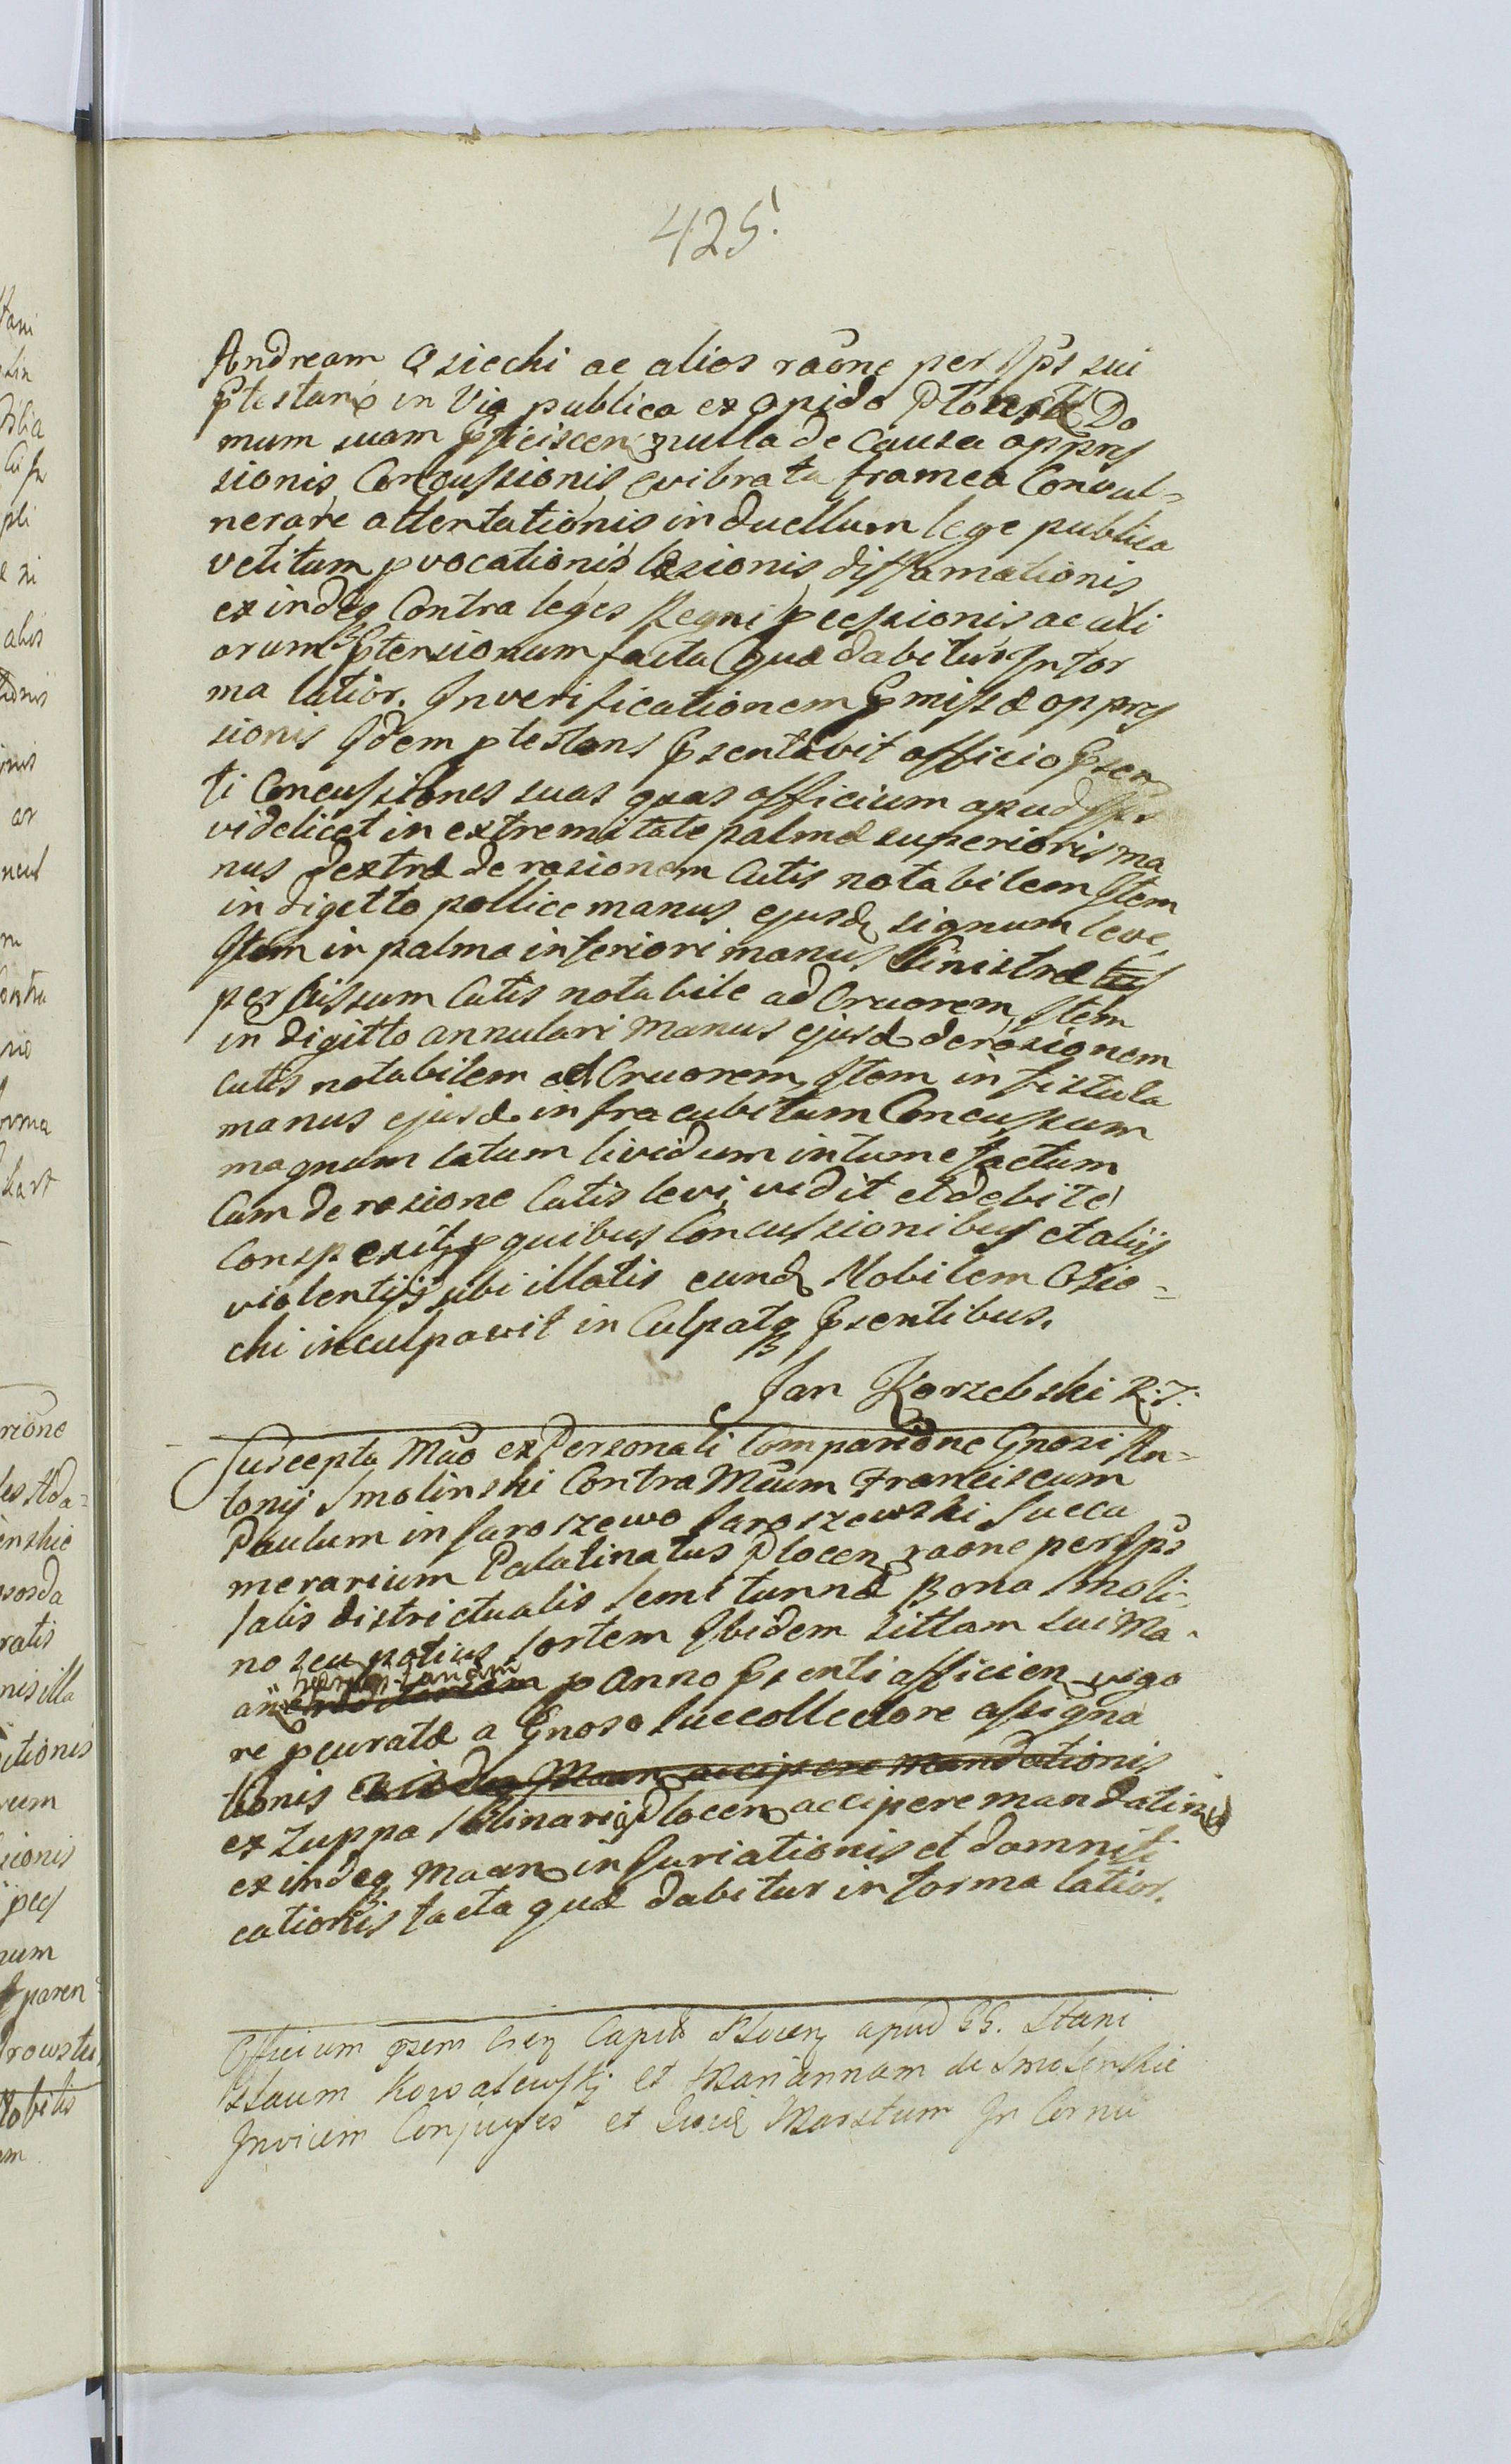 425.
Andream Osiecki ac alios raone per Ips sui
Ptestans in Via publica ex opido Płońsk Do
mum suam Pficiscen nulla de Causa oppres
sionis Concussionis evibrata framea Convul=
nerare attentationis in duellum lege publica
vetitum pvocationis læsionis diffamationis
exindeq Contra leges Regni pcessionis ac ali
orum Ptensionum facta Quæ dabitur In for
ma latior. In verificationem Pmissæ oppres
sionis Idem ptestans Psentavit officio Psen
ti Concussiones suas quas officium apud
videlicet in extremitate palmæ superioris ma
nus dextræ derasionem Cutis notabilem Item
in digitto pollice manus ejusd signum leve
Item in palma inferiori manus Sinistræ
percissum Cutis notabile ad Cruorem, Item
in digitto annulari manus ejusd derasionem
cutis notabilem ad Cruorem, Item in fistula
manus ejusd infra cubitum Concussum
magnum latum lividum intumefactum
Cum derasione Cutis levi, vidit et debite
Conspexit, p quibus Concussionibus et aliis
violentijs sibi illatis eund Nobilem Osie=
cki inculpavit in Culpatq Psentibus.
Jan Korzebski R:J:
Suscepta Mão ex Personali Comparione Gnosi An=
tonij Smolinski Contra Mcum Franciscum
Paulum in Jaroszewo Jaroszewski Succa
merarium Palatinatus Plocen raone per Ips
salis districtualis semi tunnæ Bona Smoli-
no seu potius sortem Ibidem sittam sui Ma-
an p Anno Psenti afficien
re pcuratæ a Gnoso Succollectore assigna
tionis
ex Zuppa Salinari Plocen accipere mandationis
exindeq Maan injuriationis et damnifi
cationis facta quæ dabitur in forma latior.
Officium Capit Plocen apud GG. Stani
slaum Kowalewskj et Mariannam de Smolenskie
Invicem Conjuges et In Cornu